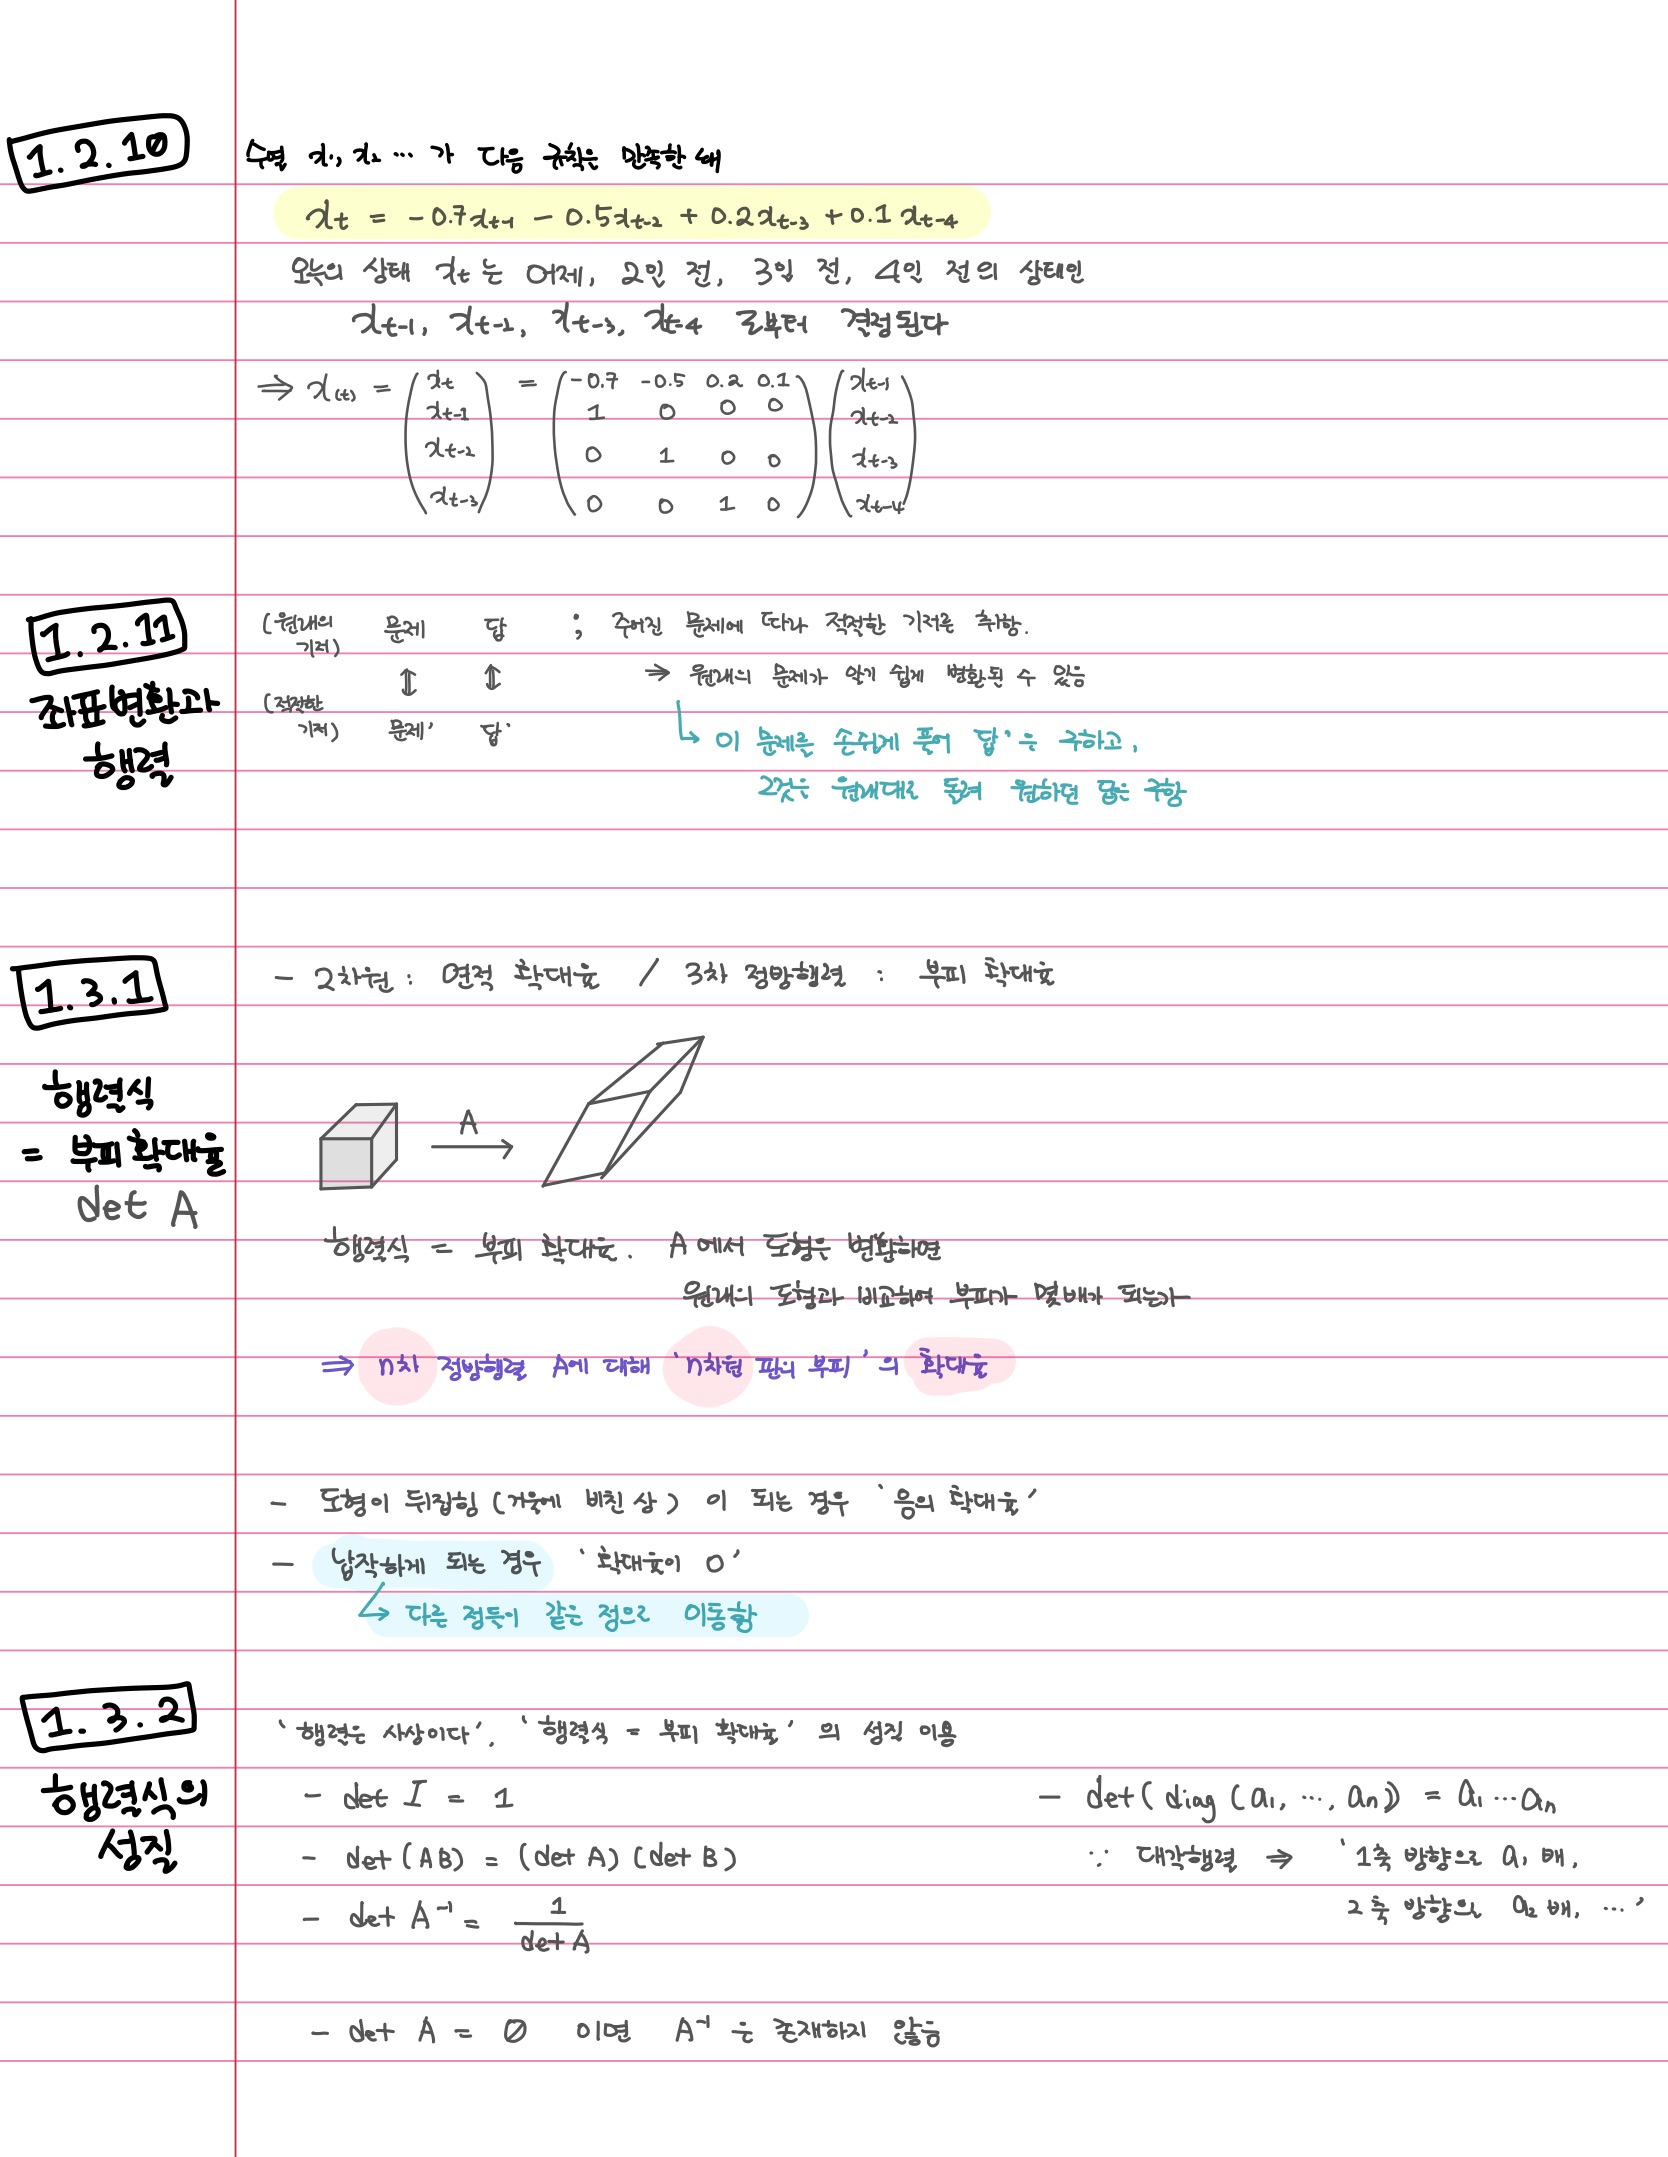 1.2.10
수열 x₁, x₂ ⋯ 가 다음 규칙을 만족할 때
xt = -0.7xt-1 - 0.5xt-2 + 0.2xt-3 + 0.1xt-4
오늘의 상태 xt는 어제, 2일 전, 3일 전, 4일 전의 상태인
xt-1, xt-2, xt-3, xt-4 로부터 결정된다
⇒ x(t) = (xt xt-1 xt-2 xt-3) = (-0.7 -0.5 0.2 0.1
1 0 0 0
0 1 0 0
0 0 1 0) (xt-1 xt-2 xt-3 xt-4)
1.2.11
좌표변환과
행렬
(원래의 기저) 문제 답 ; 주어진 문제에 따라 적절한 기저를 취함.
⇕ ⇕ → 원래의 문제가 알기 쉽게 변환될 수 있음
(적절한 기저) 문제' 답'
↳ 이 문제를 손쉽게 풀어 답'을 구하고,
그것을 원래대로 돌려 원하던 답을 구함
1.3.1
행렬식
= 부피 확대율
det A
- 2차원 : 면적 확대율 / 3차 정방행렬 : 부피 확대율
A
행렬식 = 부피 확대율. A에서 도형을 변환하면
원래의 도형과 비교하여 부피가 몇배가 되는가
⇒ n차 정방행렬 A에 대해 'n차원 판의 부피'의 확대율
- 도형이 뒤집힘 (거울에 비친 상) 이 되는 경우 '음의 확대율'
- 납작하게 되는 경우 '확대율이 0'
↳ 다른 점들이 같은 점으로 이동함
1.3.2
행렬식의
성질
'행렬은 사상이다', '행렬식 = 부피 확대율'의 성질 이용
- det I = 1
- det (AB) = (det A) (det B)
- det A⁻¹ = 1 / det A
- det A = 0 이면 A⁻¹은 존재하지 않음
- det (diag (a₁, ⋯, an)) = a₁⋯an
∵ 대각행렬 ⇒ '1축 방향으로 a₁ 배,
2축 방향으로 a₂ 배, ⋯'